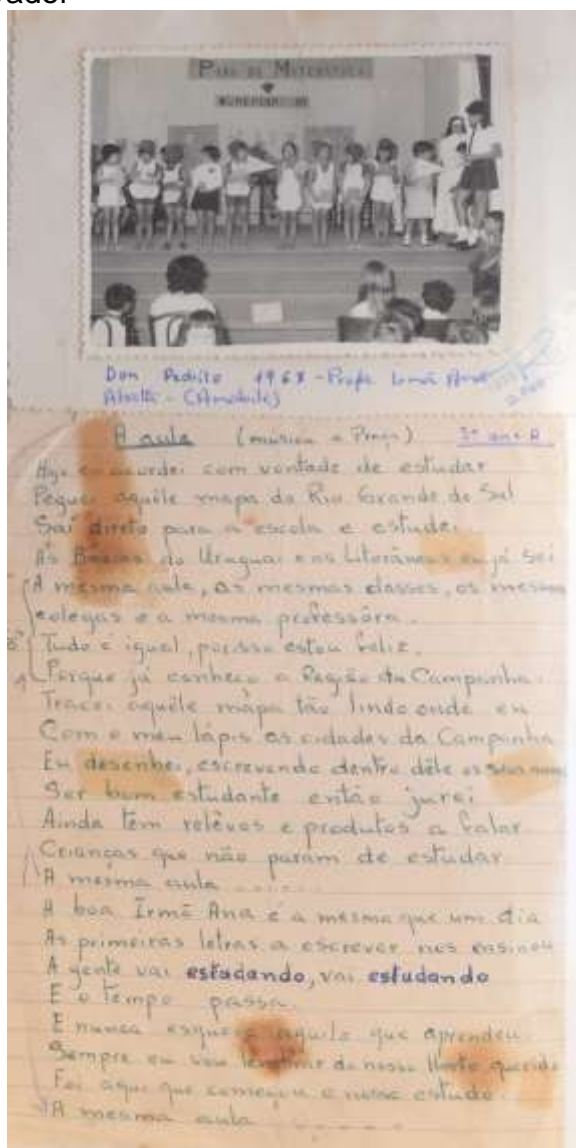 PARA DE MATEMÁTICA
Dom Pedrito 1968 - Profa Irmã
(Amabile)
A aula (música a Praça) 3º ano A
Hoje eu acordei com vontade de estudar
Peguei aquêle mapa do Rio Grande do Sul
Saí direto para a escola e estudei
As Bacias do Uruguai e as Litorâneas eu já sei
A mesma aula, as mesmas classes, os mesmos
colegas e a mesma professôra.
Tudo é igual, por isso estou feliz
Porque já conheço a Região da Campanha.
Tracei aquêle mapa tão lindo onde eu
Com o meu lápis as cidades da Campanha
Eu desenhei, escrevendo dentro dêle os seus nomes
Ser bom estudante então jurei
Ainda tem relêvos e produtos a falar
Crianças que não param de estudar
A mesma aula ......
A boa Irmã Ana é a mesma que um dia
As primeiras letras a escrever nos ensinou
A gente vai estudando, vai estudando
E o tempo passa.
E nunca esquece aquilo que aprendeu.
Sempre eu vou lembrar do nosso querido
Foi aqui que começou o nosso estudo.
A mesma aula ......